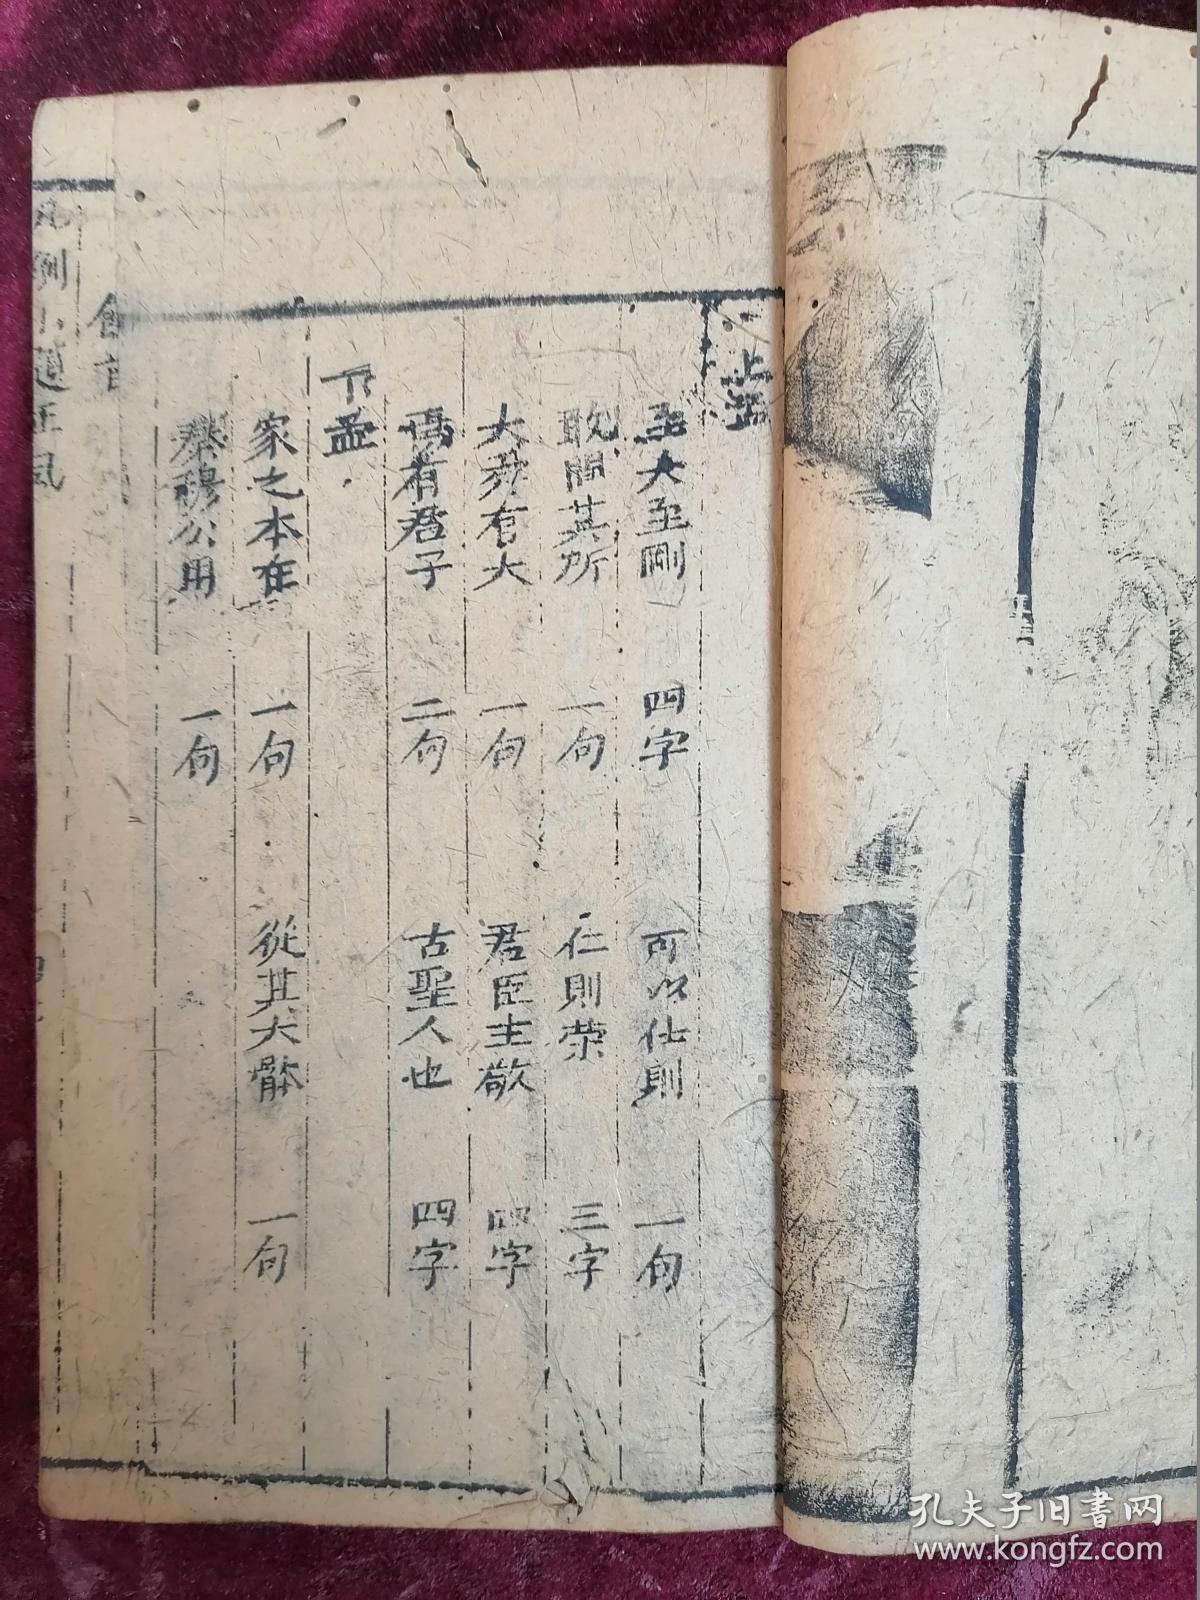 上孟
至大至剛 四字 可以仕則 一句
敢問其所 一句 仁則荣 三字
大舜有大 一句 君臣主敬 四字
爲有君子 二句 古聖人也 四字
下孟
家之本在 一句 從其大體 一句
秦穆公用 一句
孔夫子旧書网
www.kongfz.com